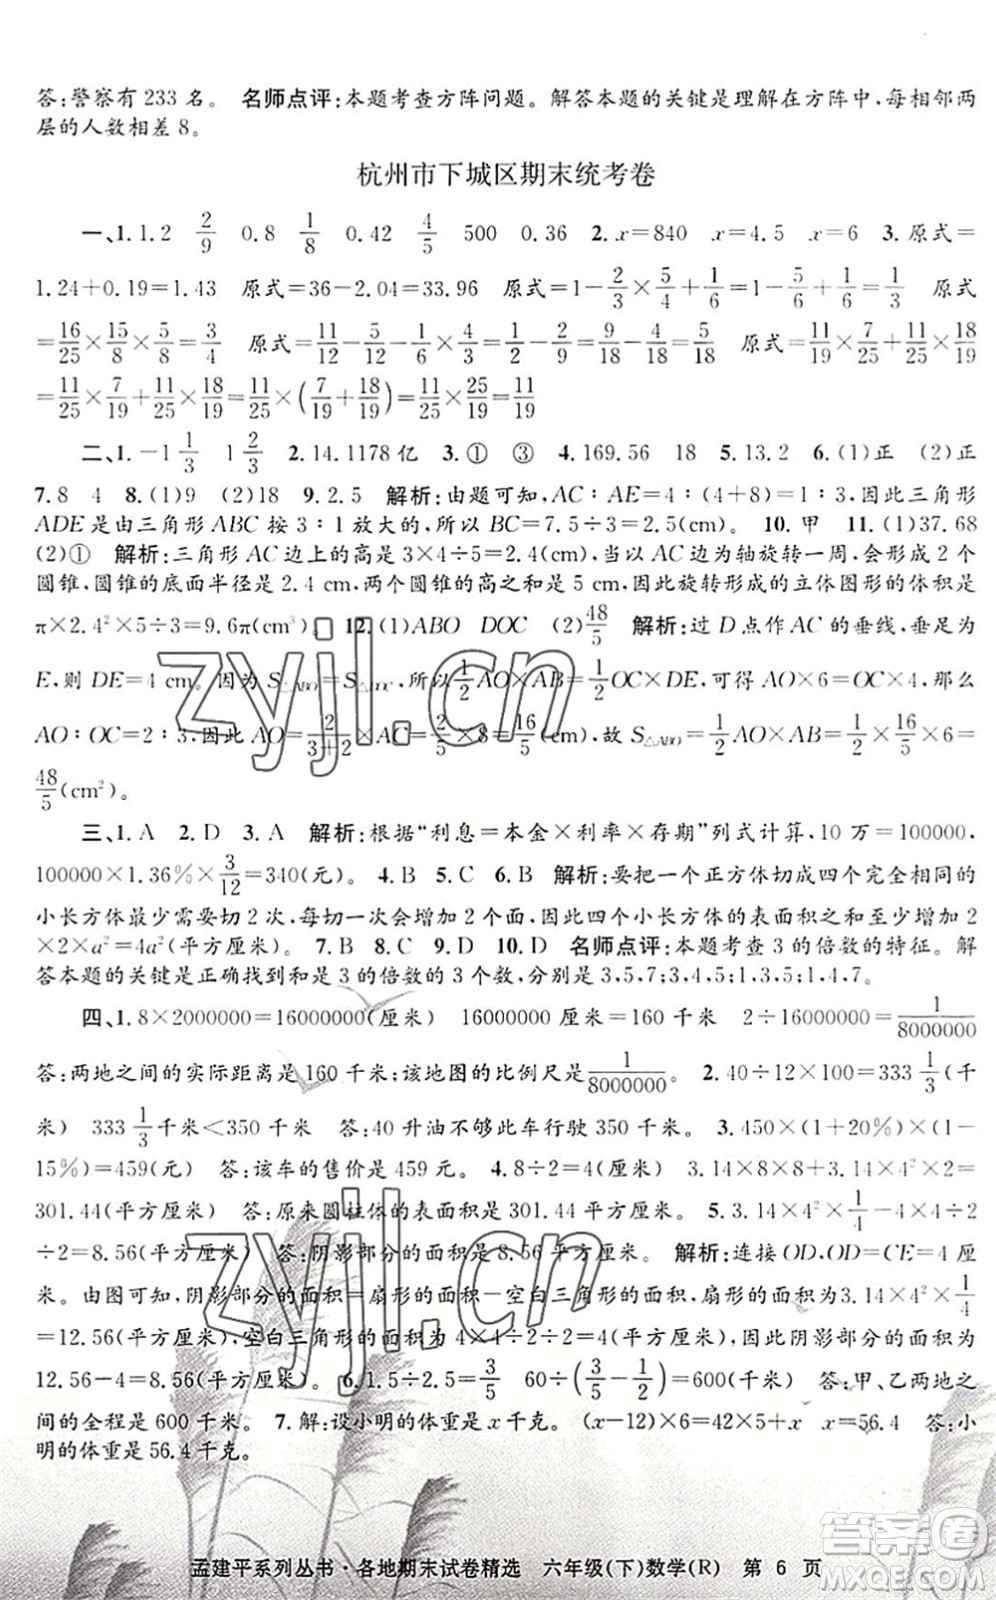 答:警察有 233 名。 名师点评:本题考查方阵问题。解答本题的关键是理解在方阵中,每相邻两
层的人数相差 8。
杭州市下城区期末统考卷
一、1. 1.2 2/9 0.8 1/8 0.42 4/5 500 0.36 2. x=840 x=4.5 x=6 3. 原式=
1.24+0.19=1.43 原式=36-2.04=33.96 原式=1-2/3×5/4+1/6=1-5/6+1/6 原式
=16/25×15/8×5/8=3/4 原式=11/12-5/12-1/6×4/3=1/2-2/9=9/18-4/18=5/18 原式=11/19×7/25+11/25×18/19
=11/25×7/19+11/25×18/19=11/25×(7/19+18/19)=11/25×25/19=11/19
二、1. -1 1/3 1 2/3 2. 14.1178 亿 3. ① ③ 4. 169.56 18 5. 13.2 6. (1)正 (2)正
7. 8 4 8. (1)9 (2)18 9. 2.5 解析:由题可知,AC∶AE=4∶(4+8)=1∶3,因此三角形
ADE 是由三角形 ABC 按 3∶1 放大的,所以 BC=7.5÷3=2.5(cm)。 10. 甲 11. (1)37.68
(2)① 解析:三角形 AC 边上的高是 3×4÷5=2.4(cm),当以 AC 边为轴旋转一周,会形成 2 个
圆锥,圆锥的底面半径是 2.4 cm,两个圆锥的高之和是 5 cm,因此旋转形成的立体图形的体积是
π×2.4²×5÷3=9.6π(cm³)。 12. (1)ABO DOC (2)48/5 解析:过 D 点作 AC 的垂线,垂足为
E,则 DE=4 cm。因为 S△ABO=S△DOC,所以1/2AO×AB=1/2OC×DE,可得 AO×6=OC×4,那么
AO∶OC=2∶3,因此 AO=2/3+2×AC=2/5×8=16/5(cm),故 S△ABO=1/2AO×AB=1/2×16/5×6=
48/5(cm²)。
三、1. A 2. D 3. A 解析:根据“利息=本金×利率×存期”列式计算,10 万=100000,
100000×1.36%×3/12=340(元)。 4. B 5. C 6. B 解析:要把一个正方体切成四个完全相同的
小长方体最少需要切 2 次,每切一次会增加 2 个面,因此四个小长方体的表面积之和至少增加 2
×2×a²=4a²(平方厘米)。 7. B 8. C 9. D 10. D 名师点评:本题考查 3 的倍数的特征。解
答本题的关键是正确找到和是 3 的倍数的 3 个数,分别是 3,5,7;3,4,5;1,3,5;1,4,7。
四、1. 8×2000000=16000000(厘米) 16000000 厘米=160 千米 2÷16000000=1/8000000
答:两地之间的实际距离是 160 千米;该地图的比例尺是1/8000000。 2. 40÷12×100=333 1/3(千
米) 333 1/3千米<350 千米 答:40 升油不够此车行驶 350 千米。 3. 450×(1+20%)×(1-
15%)=459(元) 答:该车的售价是 459 元。 4. 8÷2=4(厘米) 3.14×8×8+3.14×4²×2=
301.44(平方厘米) 答:原来圆柱体的表面积是 301.44 平方厘米。 5. 3.14×4²×1/4-4×4÷2
÷2=8.56(平方厘米) 答:阴影部分的面积是 8.56 平方厘米。 解析:连接 OD,OD=CE=4 厘
米。由图可知,阴影部分的面积=扇形的面积-空白三角形的面积,扇形的面积为3.14×4²×1/4
=12.56(平方厘米),空白三角形的面积为 4×4÷2÷2=4(平方厘米),因此阴影部分的面积为
12.56-4=8.56(平方厘米)。 6. 1.5÷2.5=3/5 60÷(3/5-1/2)=600(千米) 答:甲、乙两地之
间的全程是 600 千米。 7. 解:设小明的体重是 x 千克。 (x-12)×6=42×5+x x=56.4 答:小
明的体重是 56.4 千克。
孟建平系列丛书·各地期末试卷精选 六年级(下)数学(R) 第 6 页
zyjl.cn
zyjl.cn
答案圈
MXQE.COM